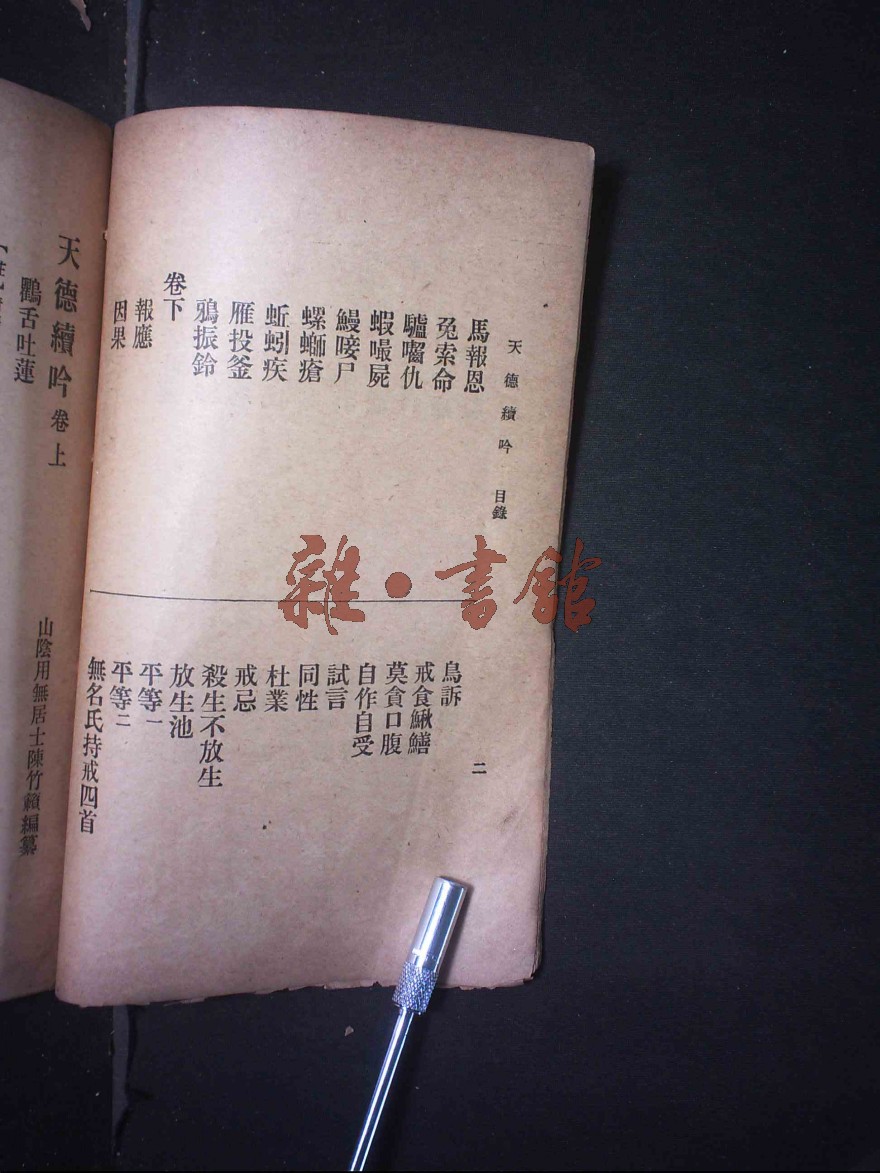 天德續吟 目錄
二
馬報恩
兔索命
驢囓仇
蝦嘬屍
鰻唼尸
螺螄瘡
蚯蚓疾
雁投釜
鴉振鈴
卷下
報應
因果
鳥訴
戒食鰍鱔
莫貪口腹
自作自受
試言
同性
杜業
戒忌
殺生不放生
放生池
平等一
平等二
無名氏持戒四首
天德續吟 卷上
山陰用無居士陳竹籟編纂
鸜舌吐蓮
雜·書館